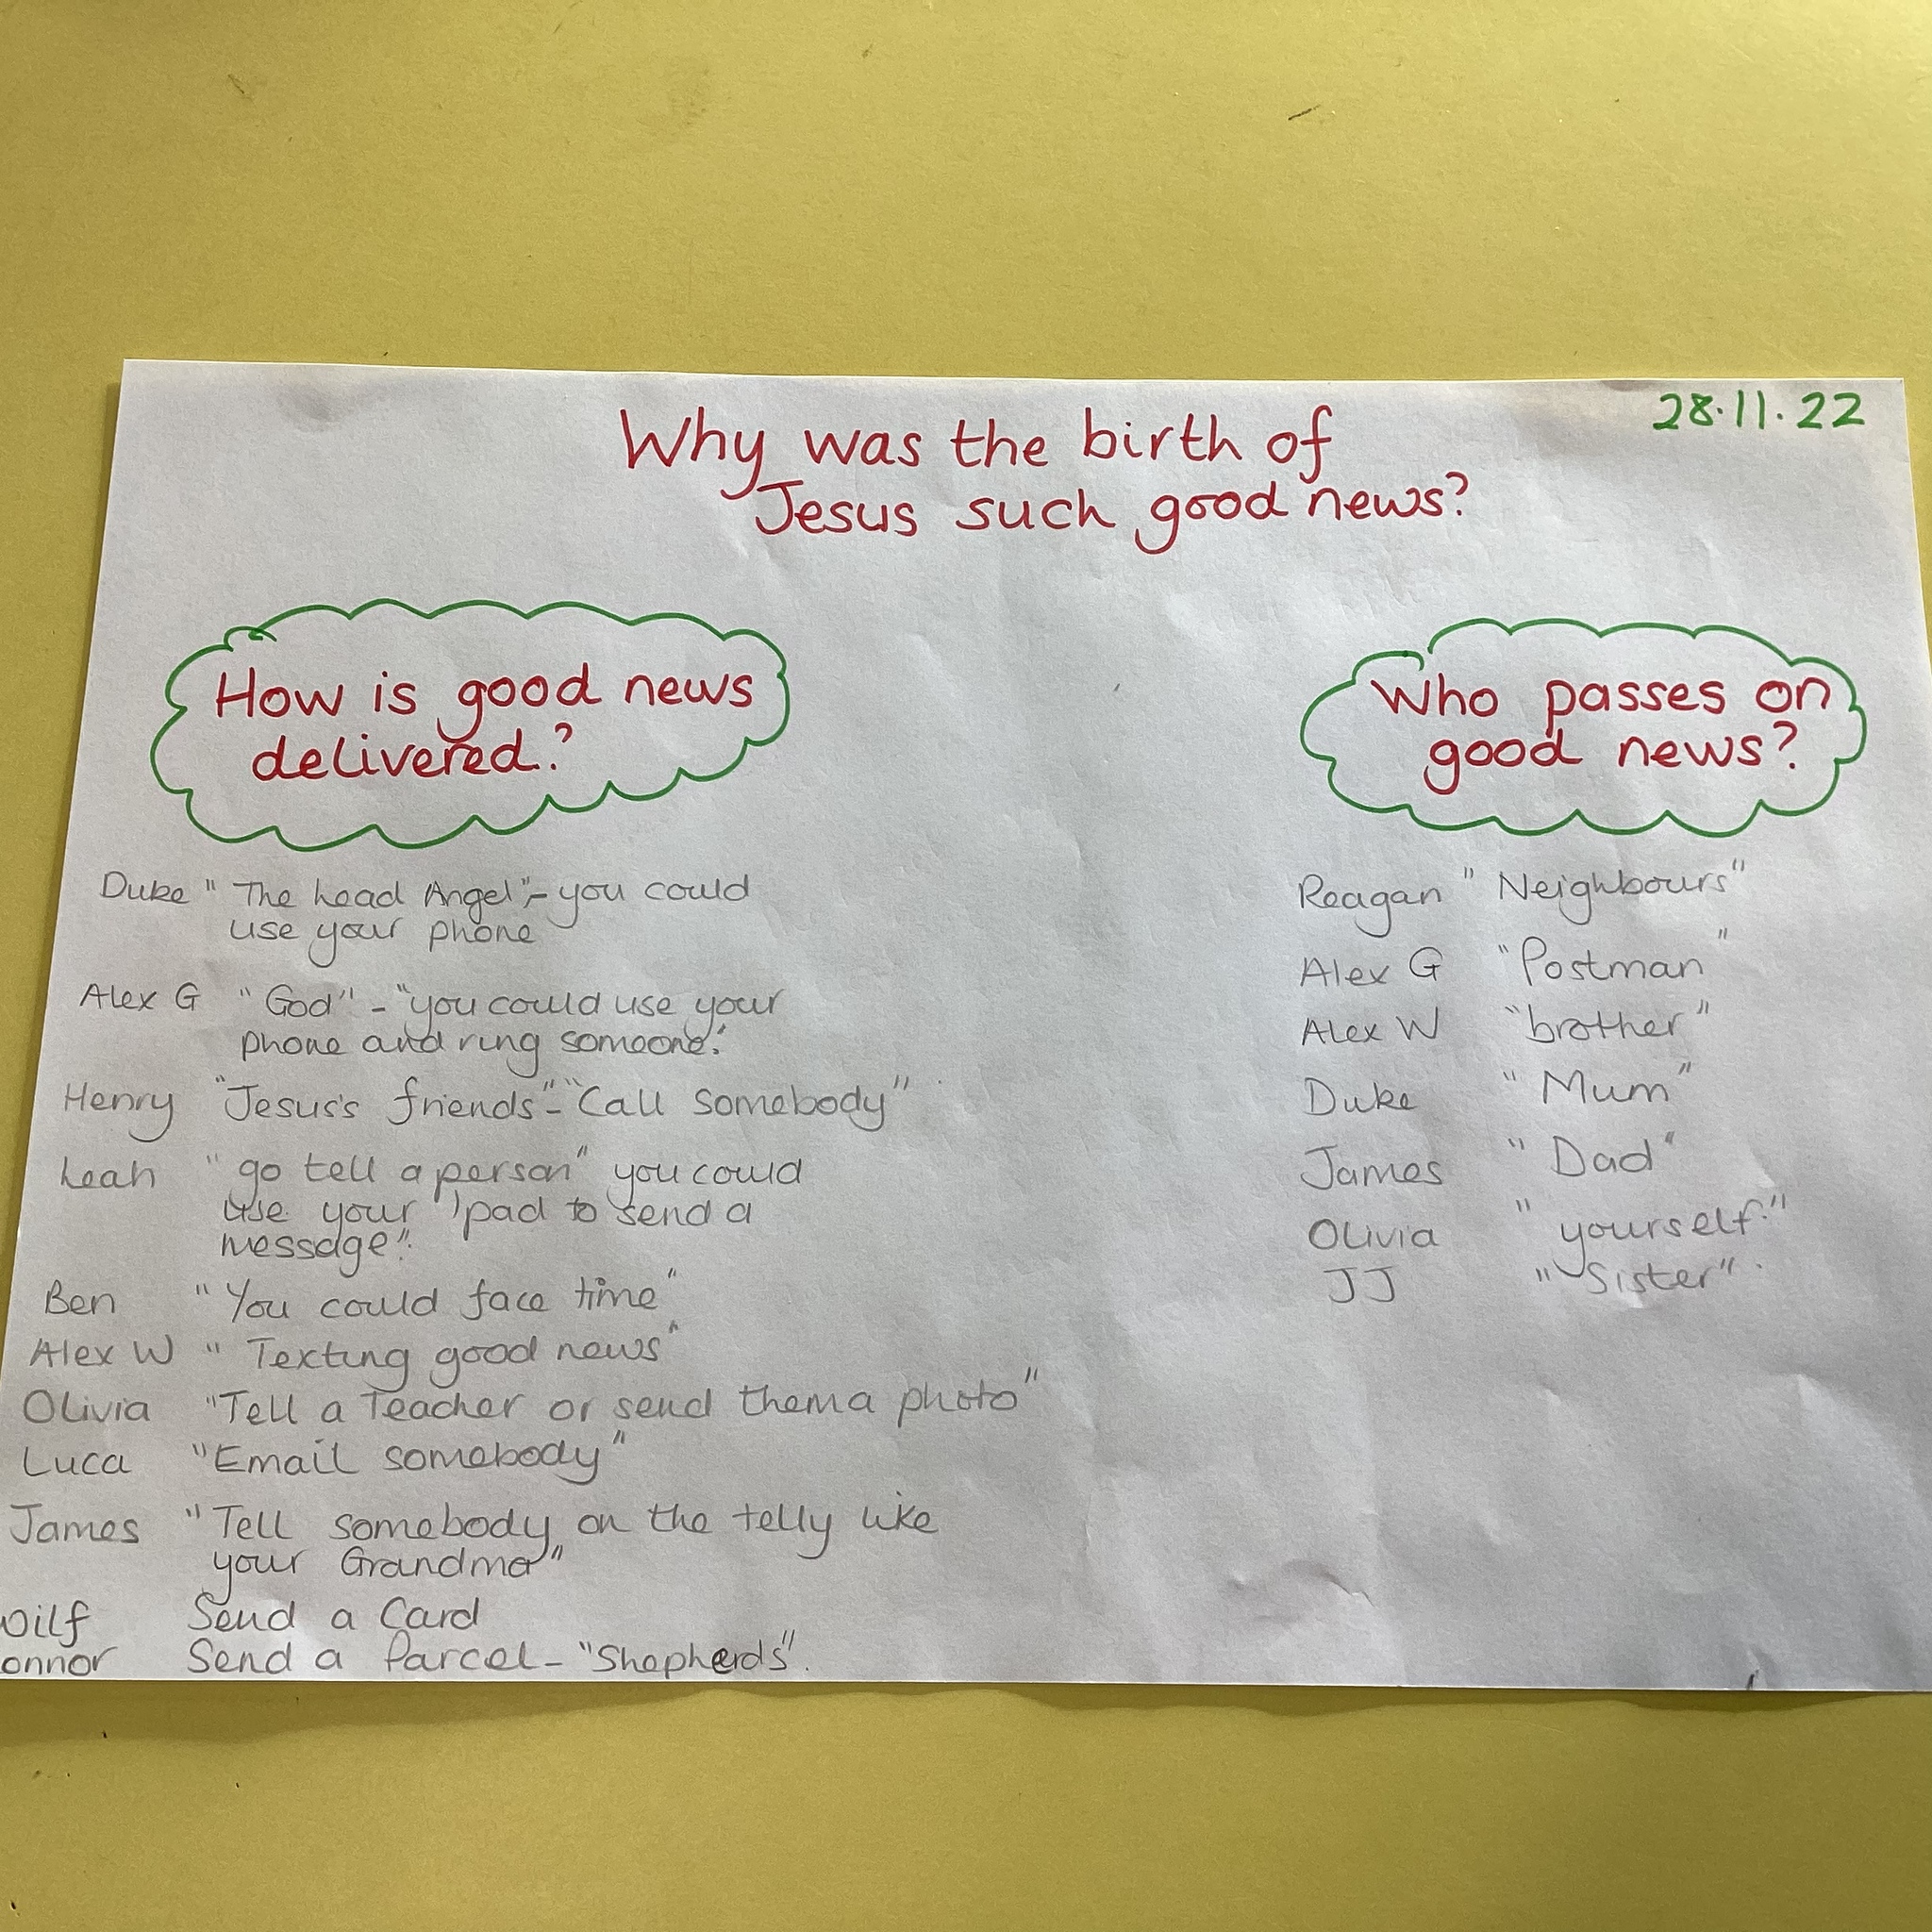 28.11.22
Why was the birth of
Jesus such good news?
How is good news
delivered.?
Duke " The head Angel"- you could
use your phone
Alex G "God" - "you could use your
phone and ring someone."
Henry "Jesus's friends" - "Call somebody"
Leah "go tell a person" you could
use your ipad to send a
message".
Ben "You could face time"
Alex W "Texting good news"
Olivia "Tell a Teacher or send them a photo"
Luca "Email somebody"
James "Tell somebody on the telly like
your Grandma"
Wilf Send a Card
onnor Send a Parcel - "Shepherds".
Who passes on
good news?
Reagan "Neighbours"
Alex G "Postman"
Alex W "brother"
Duke "Mum"
James "Dad"
Olivia "yourself."
JJ "Sister".